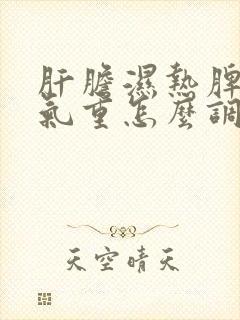 肝膽濕熱脾
氣重怎麼調
天空晴天